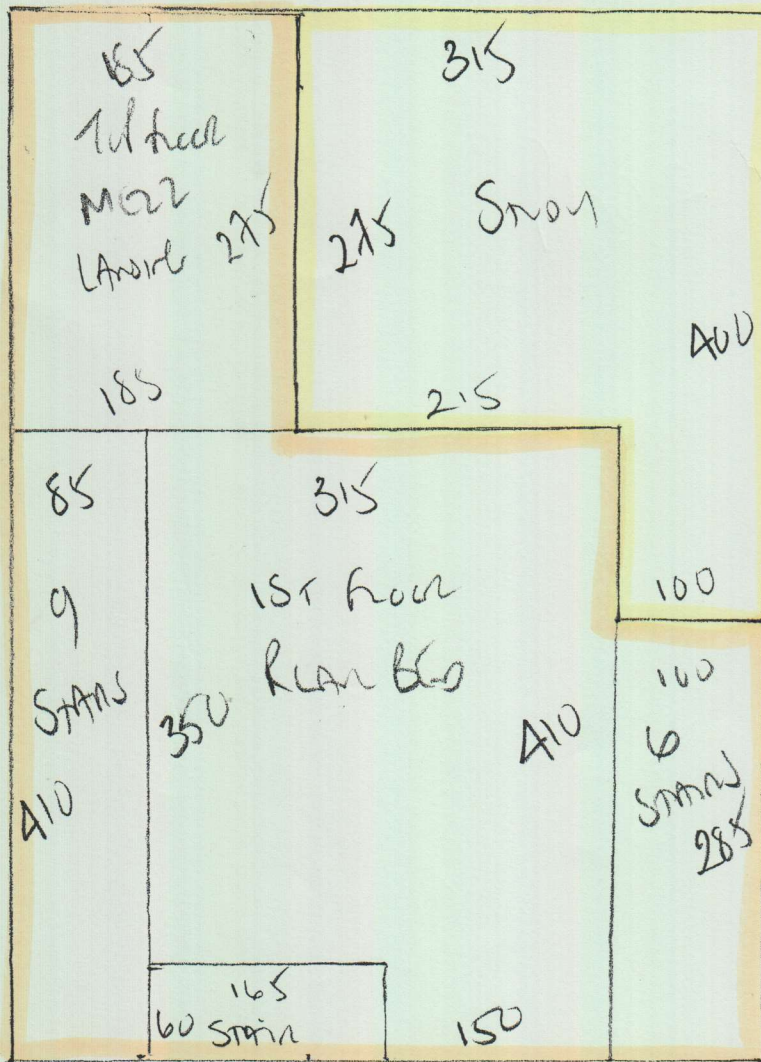 185
1st floor
Mezz
Landing 275
185
315
Study
275
400
215
100
85
9
Stairs
410
315
1ST Floor
Rear Bed
350
410
100
6
Stairs
285
165
60 Stair
150